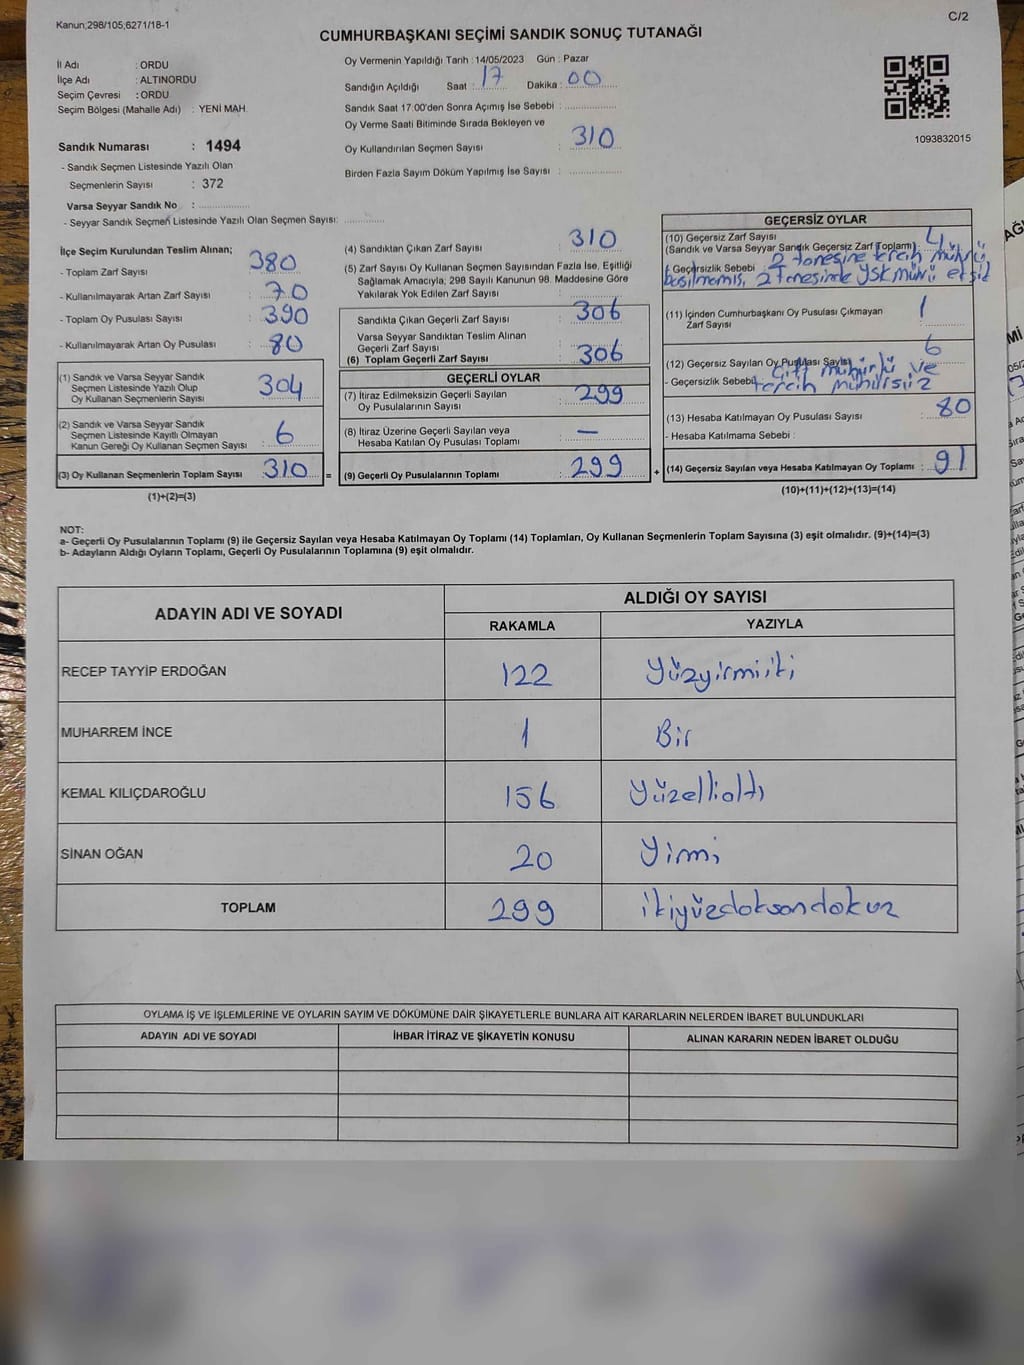 Kanun;298/105;6271/18-1
C/2
CUMHURBAŞKANI SEÇİMİ SANDIK SONUÇ TUTANAĞI
İl Adı : ORDU
İlçe Adı : ALTINORDU
Seçim Çevresi : ORDU
Seçim Bölgesi (Mahalle Adı) : YENİ MAH.
Oy Vermenin Yapıldığı Tarih : 14/05/2023 Gün : Pazar
Sandığın Açıldığı Saat : 17 Dakika : 00
Sandık Saat 17:00'den Sonra Açımış İse Sebebi :
Oy Verme Saati Bitiminde Sırada Bekleyen ve
Oy Kullandırılan Seçmen Sayısı : 310
Birden Fazla Sayım Döküm Yapılmış İse Sayısı :
1093832015
Sandık Numarası : 1494
- Sandık Seçmen Listesinde Yazılı Olan
Seçmenlerin Sayısı : 372
Varsa Seyyar Sandık No :
- Seyyar Sandık Seçmen Listesinde Yazılı Olan Seçmen Sayısı:
İlçe Seçim Kurulundan Teslim Alınan;
- Toplam Zarf Sayısı : 380
- Kullanılmayarak Artan Zarf Sayısı : 70
- Toplam Oy Pusulası Sayısı : 390
- Kullanılmayarak Artan Oy Pusulası : 80
(1) Sandık ve Varsa Seyyar Sandık
Seçmen Listesinde Yazılı Olup
Oy Kullanan Seçmenlerin Sayısı : 304
(2) Sandık ve Varsa Seyyar Sandık
Seçmen Listesinde Kayıtlı Olmayan
Kanun Gereği Oy Kullanan Seçmen Sayısı : 6
(3) Oy Kullanan Seçmenlerin Toplam Sayısı : 310 =
(1)+(2)=(3)
(4) Sandıktan Çıkan Zarf Sayısı : 310
(5) Zarf Sayısı Oy Kullanan Seçmen Sayısından Fazla İse, Eşitliği
Sağlamak Amacıyla; 298 Sayılı Kanunun 98. Maddesine Göre
Yakılarak Yok Edilen Zarf Sayısı :
Sandıkta Çıkan Geçerli Zarf Sayısı : 306
Varsa Seyyar Sandıktan Teslim Alınan
Geçerli Zarf Sayısı :
(6) Toplam Geçerli Zarf Sayısı : 306
GEÇERLİ OYLAR
(7) İtiraz Edilmeksizin Geçerli Sayılan
Oy Pusulalarının Sayısı : 299
(8) İtiraz Üzerine Geçerli Sayılan veya
Hesaba Katılan Oy Pusulası Toplamı : —
(9) Geçerli Oy Pusulalarının Toplamı : 299 +
GEÇERSİZ OYLAR
(10) Geçersiz Zarf Sayısı
(Sandık ve Varsa Seyyar Sandık Geçersiz Zarf Toplamı) : 4
- Geçersizlik Sebebi : 2 tanesine tercih mührü
basılmamış, 2 tanesinde YSK mührü eksiz
(11) İçinden Cumhurbaşkanı Oy Pusulası Çıkmayan
Zarf Sayısı : 1
(12) Geçersiz Sayılan Oy Pusulası Sayısı : 6
- Geçersizlik Sebebi : çift mühürlü ve
tercih mühürsüz
(13) Hesaba Katılmayan Oy Pusulası Sayısı : 80
- Hesaba Katılmama Sebebi :
(14) Geçersiz Sayılan veya Hesaba Katılmayan Oy Toplamı : 91
(10)+(11)+(12)+(13)=(14)
NOT:
a- Geçerli Oy Pusulalarının Toplamı (9) ile Geçersiz Sayılan veya Hesaba Katılmayan Oy Toplamı (14) Toplamları, Oy Kullanan Seçmenlerin Toplam Sayısına (3) eşit olmalıdır. (9)+(14)=(3)
b- Adayların Aldığı Oyların Toplamı, Geçerli Oy Pusulalarının Toplamına (9) eşit olmalıdır.
ADAYIN ADI VE SOYADI
ALDIĞI OY SAYISI
RAKAMLA YAZIYLA
RECEP TAYYİP ERDOĞAN 122 Yüzyirmiiki
MUHARREM İNCE 1 Bir
KEMAL KILIÇDAROĞLU 156 Yüzellialtı
SİNAN OĞAN 20 Yirmi
TOPLAM 299 ikiyüzdoksandokuz
OYLAMA İŞ VE İŞLEMLERİNE VE OYLARIN SAYIM VE DÖKÜMÜNE DAİR ŞİKAYETLERLE BUNLARA AİT KARARLARIN NELERDEN İBARET BULUNDUKLARI
ADAYIN ADI VE SOYADI İHBAR İTİRAZ VE ŞİKAYETİN KONUSU ALINAN KARARIN NEDEN İBARET OLDUĞU